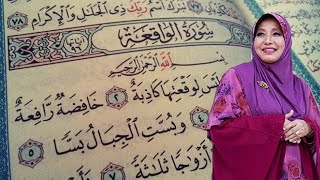 تَبَٰرَكَ ٱسْمُ رَبِّكَ ذِى ٱلْجَلَٰلِ وَٱلْإِكْرَامِ ٧٨
سُورَةُ الوَاقِعَةِ
بِسْمِ ٱللَّهِ ٱلرَّحْمَٰنِ ٱلرَّحِيمِ
لَيْسَ لِوَقْعَتِهَا كَاذِبَةٌ ٢ خَافِضَةٌ رَّافِعَةٌ
٤ وَبُسَّتِ ٱلْجِبَالُ بَسًّا ٥
أَزْوَٰجًا ثَلَٰثَةً ٧